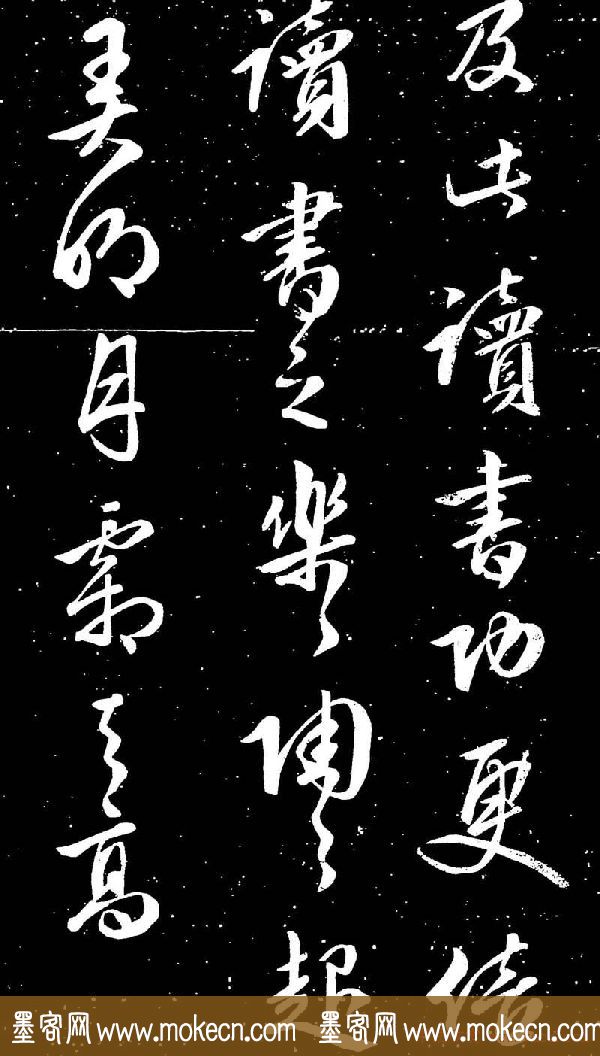 及此讀書功更倍
讀書之樂々陶々起
弄明月霜天高
墨客网 www.mokecn.com 墨客网 www.mokecn.com